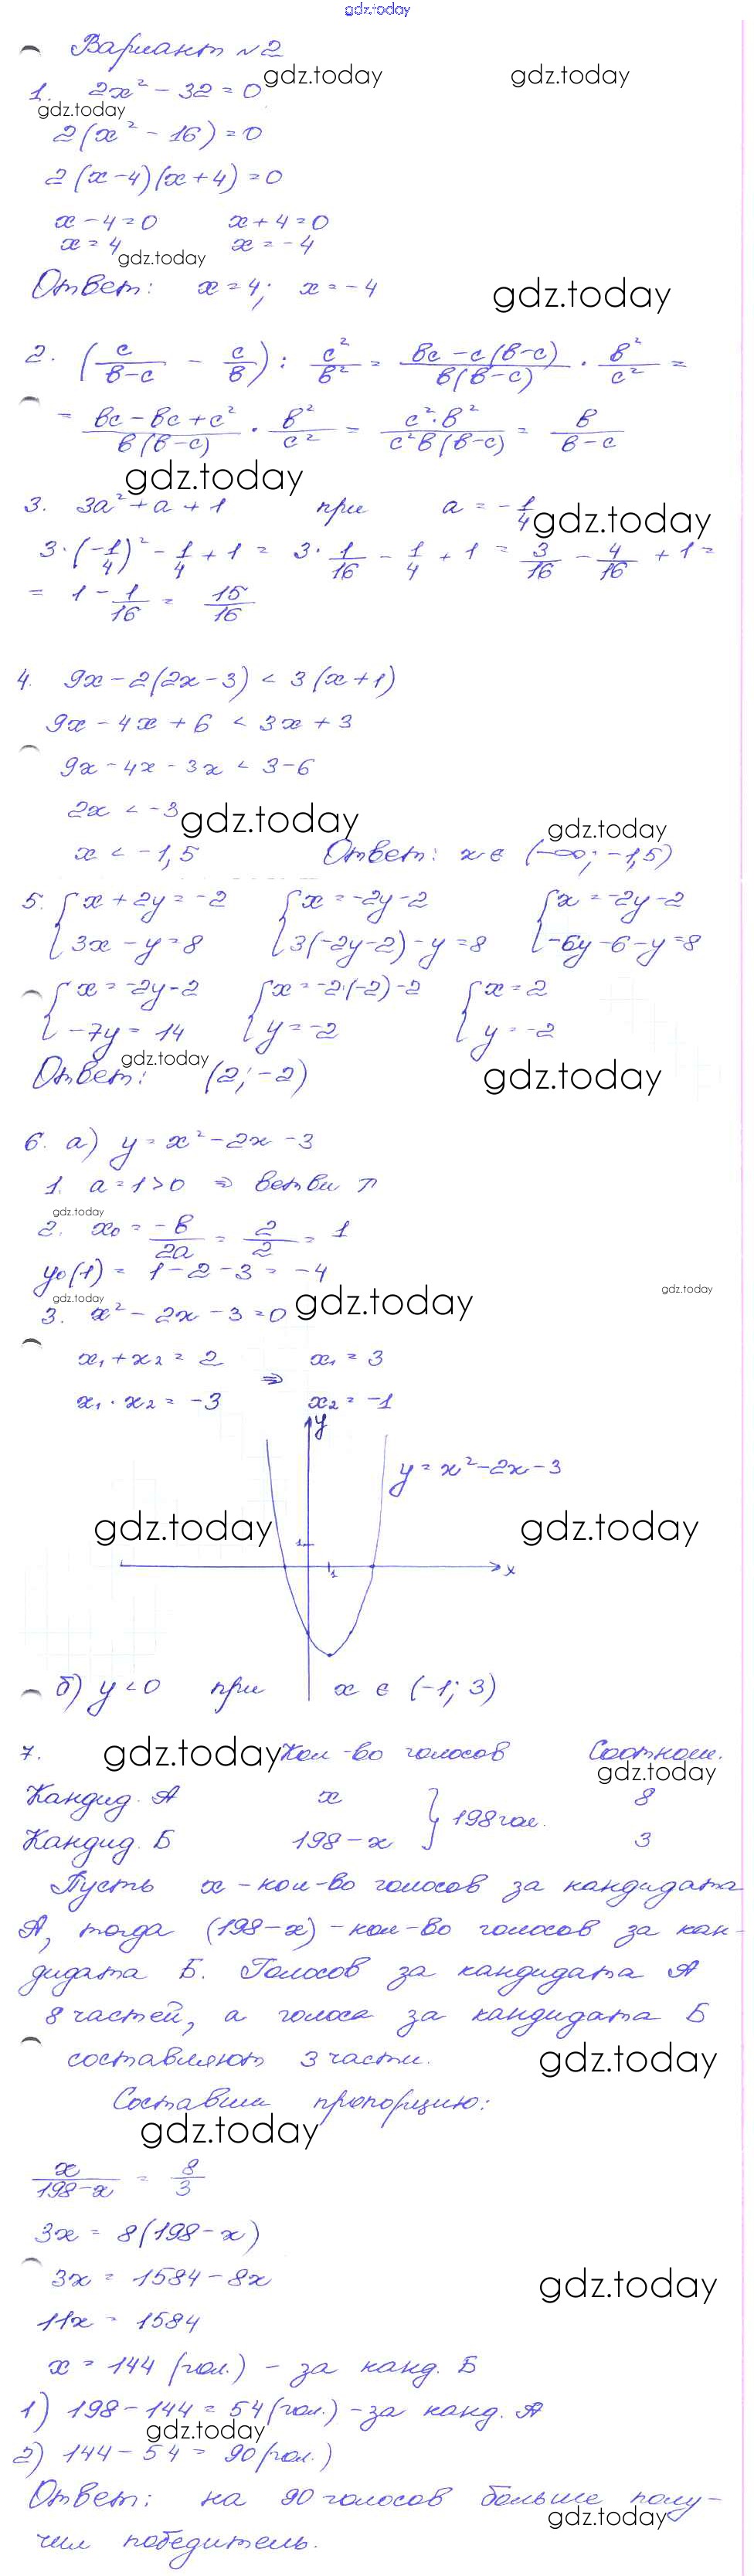 gdz.today
Вариант №2
gdz.today gdz.today
1. 2x² - 32 = 0
gdz.today
2(x² - 16) = 0
2(x-4)(x+4) = 0
x - 4 = 0 x + 4 = 0
x = 4 x = -4
gdz.today
Ответ: x = 4; x = -4
gdz.today
2. (c/(в-c) - c/в) : c²/в² = (вc - c(в-c))/(в(в-c)) · в²/c² =
= (вc - вc + c²)/(в(в-c)) · в²/c² = (c²·в²)/(c²в(в-c)) = в/(в-c)
gdz.today
3. 3a² + a + 1 при a = -1/4
gdz.today
3·(-1/4)² - 1/4 + 1 = 3·1/16 - 1/4 + 1 = 3/16 - 4/16 + 1 =
= 1 - 1/16 = 15/16
4. 9x - 2(2x-3) < 3(x+1)
9x - 4x + 6 < 3x + 3
9x - 4x - 3x < 3 - 6
2x < -3
gdz.today gdz.today
x < -1,5 Ответ: x ∈ (-∞; -1,5)
5. { x + 2y = -2 { x = -2y-2 { x = -2y-2
{ 3x - y = 8 { 3(-2y-2) - y = 8 { -6y-6-y = 8
{ x = -2y-2 { x = -2·(-2)-2 { x = 2
{ -7y = 14 { y = -2 { y = -2
gdz.today
Ответ: (2; -2)
gdz.today
6. а) y = x² - 2x - 3
1. a = 1 > 0 ⇒ ветви ↑
gdz.today
2. x₀ = -в/2a = 2/2 = 1
y₀(1) = 1 - 2 - 3 = -4
gdz.today gdz.today gdz.today
3. x² - 2x - 3 = 0
x₁ + x₂ = 2 ⇒ x₁ = 3
x₁ · x₂ = -3 x₂ = -1
y
y = x² - 2x - 3
gdz.today gdz.today
1
1 x
б) y < 0 при x ∈ (-1; 3)
7. gdz.today Кол-во голосов Соотнош.
gdz.today
Кандид. А x } 198 гол. 8
Кандид. Б 198 - x 3
Пусть x - кол-во голосов за кандидата
А, тогда (198-x) - кол-во голосов за кан-
дидата Б. Голосов за кандидата А
8 частей, а голоса за кандидата Б
составляют 3 части.
gdz.today
Составим пропорцию:
gdz.today
x/(198-x) = 8/3
3x = 8(198-x)
3x = 1584 - 8x
gdz.today
11x = 1584
x = 144 (гол.) - за канд. Б
1) 198 - 144 = 54 (гол.) - за канд. А
gdz.today
2) 144 - 54 = 90 (гол.)
Ответ: на 90 голосов больше полу-
gdz.today
чил победитель.